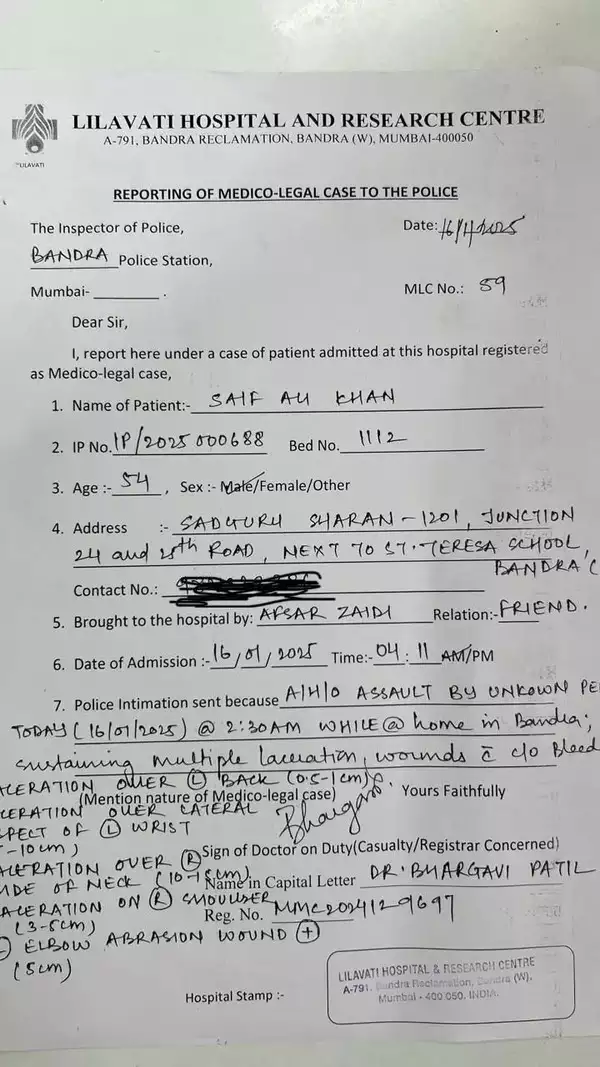 LILAVATI HOSPITAL AND RESEARCH CENTRE
A-791, BANDRA RECLAMATION, BANDRA (W), MUMBAI-400050
LILAVATI
REPORTING OF MEDICO-LEGAL CASE TO THE POLICE
The Inspector of Police, Date: 16/1/2025
BANDRA Police Station,
Mumbai- ________ . MLC No.: 59
Dear Sir,
I, report here under a case of patient admitted at this hospital registered
as Medico-legal case,
1. Name of Patient:- SAIF ALI KHAN
2. IP No. IP/2025000688 Bed No. 1112
3. Age :- 54 , Sex :- Male/Female/Other
4. Address :- SADGURU SHARAN - 1201, JUNCTION
24 and 25th ROAD, NEXT TO ST. TERESA SCHOOL,
BANDRA (
Contact No.:
5. Brought to the hospital by: AFSAR ZAIDI Relation:- FRIEND.
6. Date of Admission :- 16/01/2025 Time:- 04:11 AM/PM
7. Police Intimation sent because A/H/O ASSAULT BY UNKOWN PE
TODAY (16/01/2025) @ 2:30AM WHILE @ home in Bandra;
sustaining multiple laceration, wounds c̄ c/o Bleed
ACERATION OVER (L) BACK (0.5-1cm)
(Mention nature of Medico-legal case) Yours Faithfully
CERATION OVER LATERAL
SPECT OF (L) WRIST
-10cm)
Bhargavi
ACERATION OVER (R) Sign of Doctor on Duty(Casualty/Registrar Concerned)
IDE OF NECK (10-15cm)
Name in Capital Letter DR. BHARGAVI PATIL
ACERATION ON (R) SHOULDER
(3-5cm) Reg. No. MMC2024129697
ELBOW ABRASION WOUND (+)
(5cm)
Hospital Stamp :-
LILAVATI HOSPITAL & RESEARCH CENTRE
A-791, Bandra Reclamation, Bandra (W),
Mumbai - 400 050. INDIA.